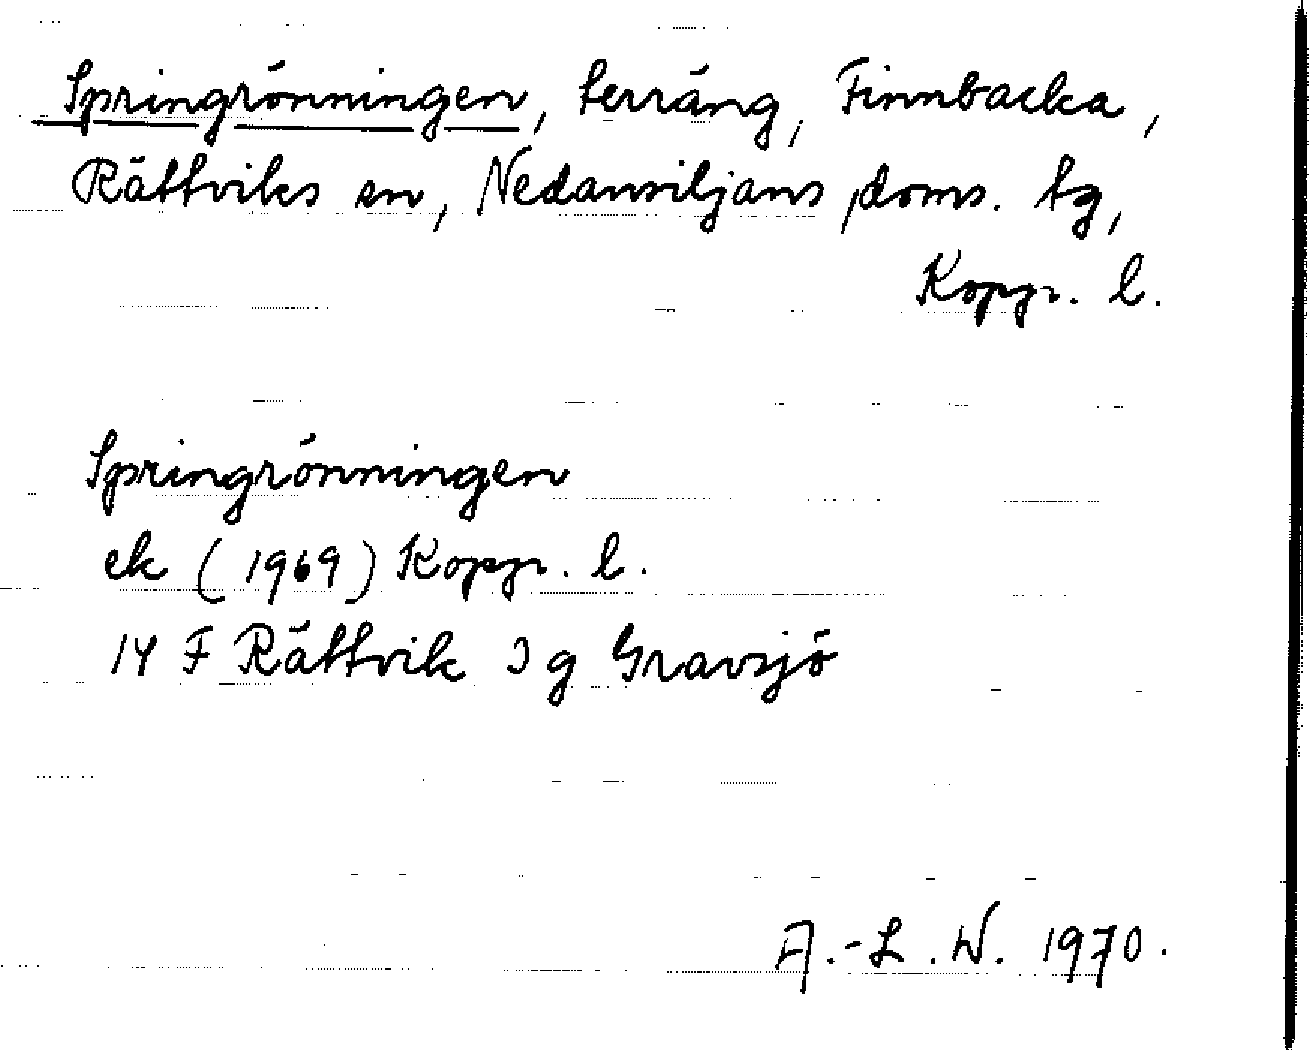 Springrönningen, terräng, Finnbacka,
Rättviks sn, Nedansiljans doms. tg,
Koppr. l.
Springrönningen
ek (1969) Koppr. l.
14 F Rättvik 3 g Gravsjö
A.-L. W. 1970.